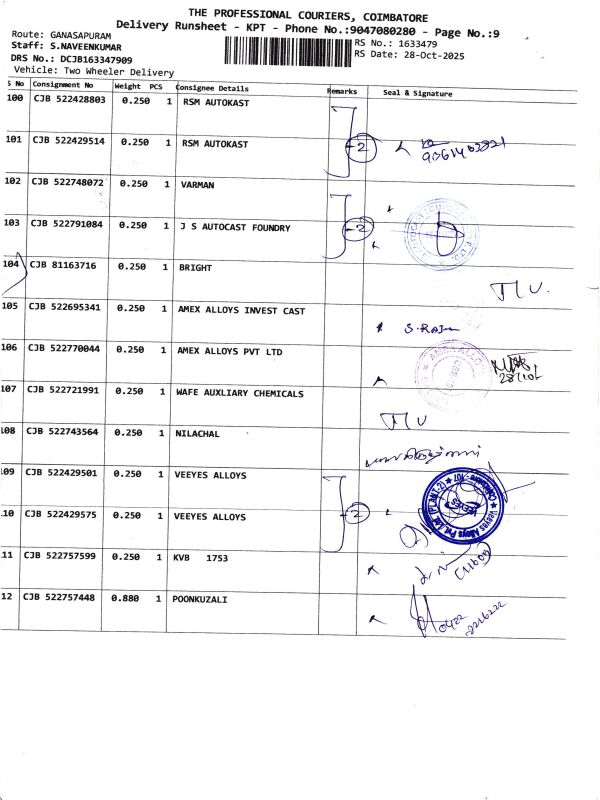 THE PROFESSIONAL COURIERS, COIMBATORE
Delivery Runsheet - KPT - Phone No.:9047080280 - Page No.:9
Route: GANASAPURAM
Staff: S.NAVEENKUMAR
DRS No.: DCJB163347909
Vehicle: Two Wheeler Delivery
RS No.: 1633479
RS Date: 28-Oct-2025
S No Consignment No Weight PCS Consignee Details Remarks Seal & Signature
100 CJB 522428803 0.250 1 RSM AUTOKAST
101 CJB 522429514 0.250 1 RSM AUTOKAST 2
102 CJB 522748072 0.250 1 VARMAN
103 CJB 522791084 0.250 1 J S AUTOCAST FOUNDRY 2
104 CJB 81163716 0.250 1 BRIGHT
105 CJB 522695341 0.250 1 AMEX ALLOYS INVEST CAST S. RAJA
106 CJB 522770044 0.250 1 AMEX ALLOYS PVT LTD
107 CJB 522721991 0.250 1 WAFE AUXLIARY CHEMICALS
08 CJB 522743564 0.250 1 NILACHAL
09 CJB 522429501 0.250 1 VEEYES ALLOYS
10 CJB 522429575 0.250 1 VEEYES ALLOYS 2 Veeyes Alloys Pvt. Ltd. (PLANT-2)
11 CJB 522757599 0.250 1 KVB 1753
12 CJB 522757448 0.880 1 POONKUZALI